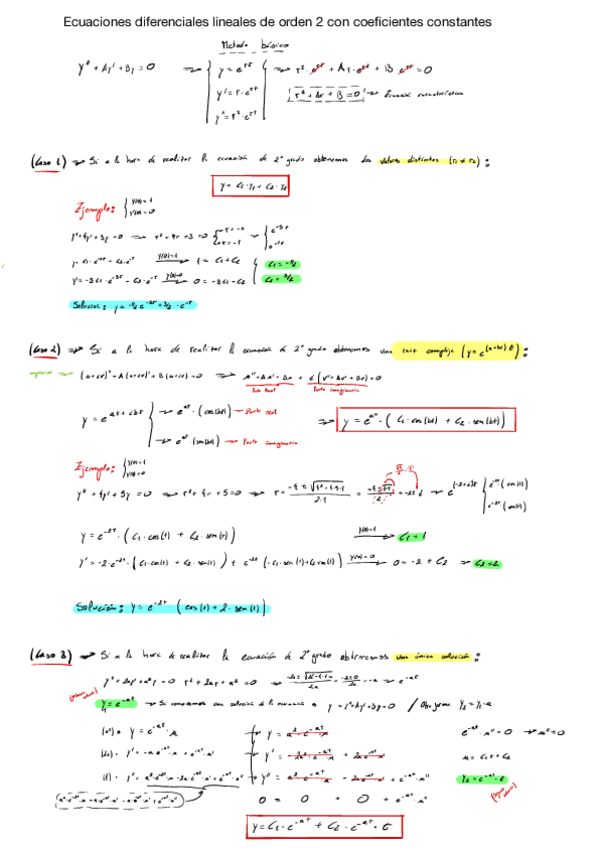 Ecuaciones diferenciales lineales de orden 2 con coeficientes constantes
Metodo básico
y'' + Ay' + By = 0 ⇒ { y = e^rt ⇒ r²·e^rt + Ar·e^rt + B e^rt = 0
y' = r·e^rt r² + Ar + B = 0 → Ecuación característica
y'' = r²·e^rt
(Caso 1) → Si a la hora de realizar la ecuación de 2º grado obtenemos dos valores distintos (r₁ ≠ r₂):
y = C₁·y₁ + C₂·y₂
Ejemplo: { y(0)=1
y'(0)=0
y'' + 4y' + 3y = 0 → r² + 4r + 3 = 0 { r = -3 → { e^-3t
r = -1
y = C₁·e^-3t + C₂·e^-t y(0)=1 → 1 = C₁ + C₂ { C₁ = -1/2
y' = -3C₁·e^-3t - C₂·e^-t y'(0)=0 → 0 = -3C₁ - C₂ C₂ = 3/2
Solución: y = -1/2 e^-3t + 3/2 · e^-t
(Caso 2) → Si a la hora de realizar la ecuación de 2º grado obtenemos una raiz compleja (y = e^(a+bi)t):
(u+iv)'' + A(u+iv)' + B(u+iv) = 0 → u'' + Au' + Bu + i(v'' + Av' + Bv) = 0
Parte real Parte imaginaria
y = e^at+ibt { → e^at·(cos(bt)) → Parte real
→ e^at (sen(bt)) → Parte imaginaria
⇒ y = e^at·(C₁·cos(bt) + C₂·sen(bt))
Ejemplo: { y(0)=1
y'(0)=0
y'' + 4y' + 5y = 0 → r² + 4r + 5 = 0 → r = (-4 ± √(4² - 4·5·1)) / 2·1 = = -2 ± i → e^(-2+i)t { e^-2t (cos(t))
e^-2t (sen(t))
y = e^-2t·(C₁·cos(t) + C₂·sen(t)) y(0)=1 → C₁ = 1
y' = -2·e^-2t·(C₁·cos(t) + C₂·sen(t)) + e^-2t (-C₁·sen(t) + C₂·cos(t)) y'(0)=0 → 0 = -2 + C₂ → C₂ = 2
Solución: y = e^-2t·(cos(t) + 2·sen(t))
(Caso 3) → Si a la hora de realizar la ecuación de 2º grado obtenemos una única solución:
y'' + 2ay' + a²y = 0 r² + 2ar + a² = 0 → = -a → e^-at
y₁ = e^-at → Si conocemos una solución de la ecuación / Otra forma y₂ = y₁·u
(a²)· y = e^-at·u → y = a²·e^-at·u e^-at·u'' = 0 → u'' = 0
(2a)· y' = -a·e^-at·u + e^-at·u' → y' = u = C₁t + C₂
(1)· y'' = → y'' = y₂ = e^-at·t
0 = 0 + 0 + e^-at·u''
y = C₁·e^-at + C₂·e^-at·t